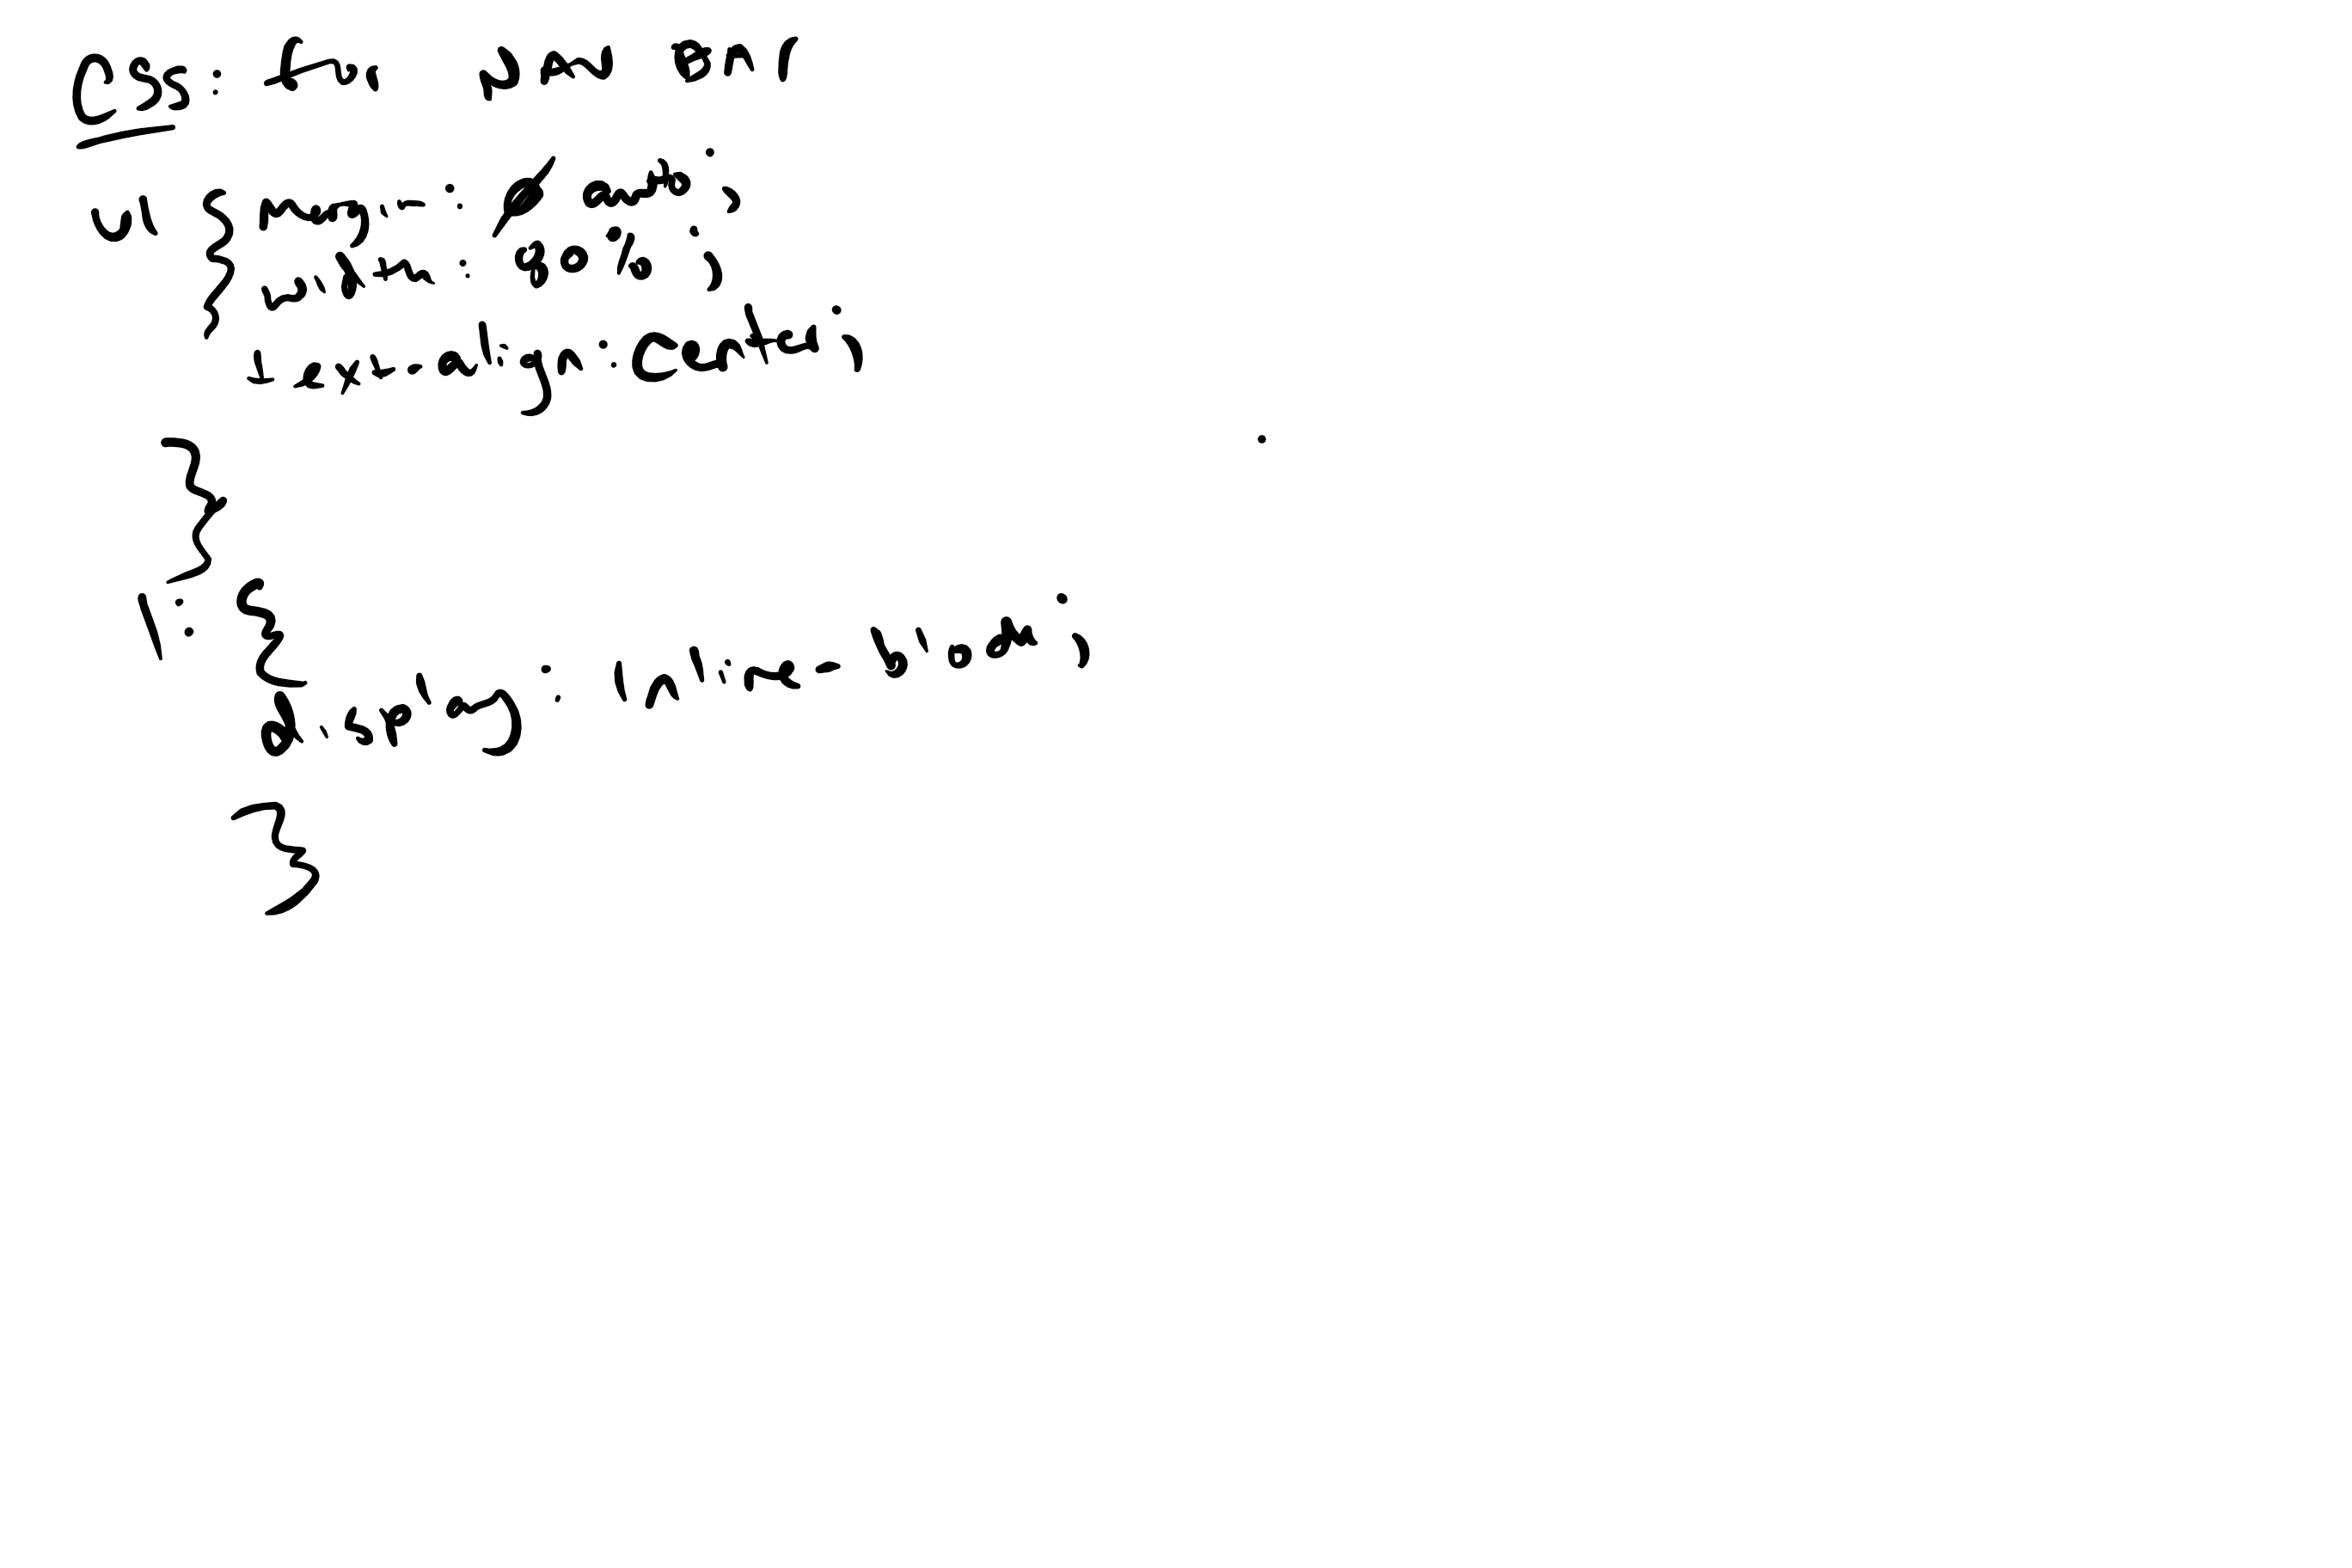 CSS: for Nav Bar
ul { margin: 0 auto;
width: 80%;
text-align: Center;
}
li {
display: inline-block;
}